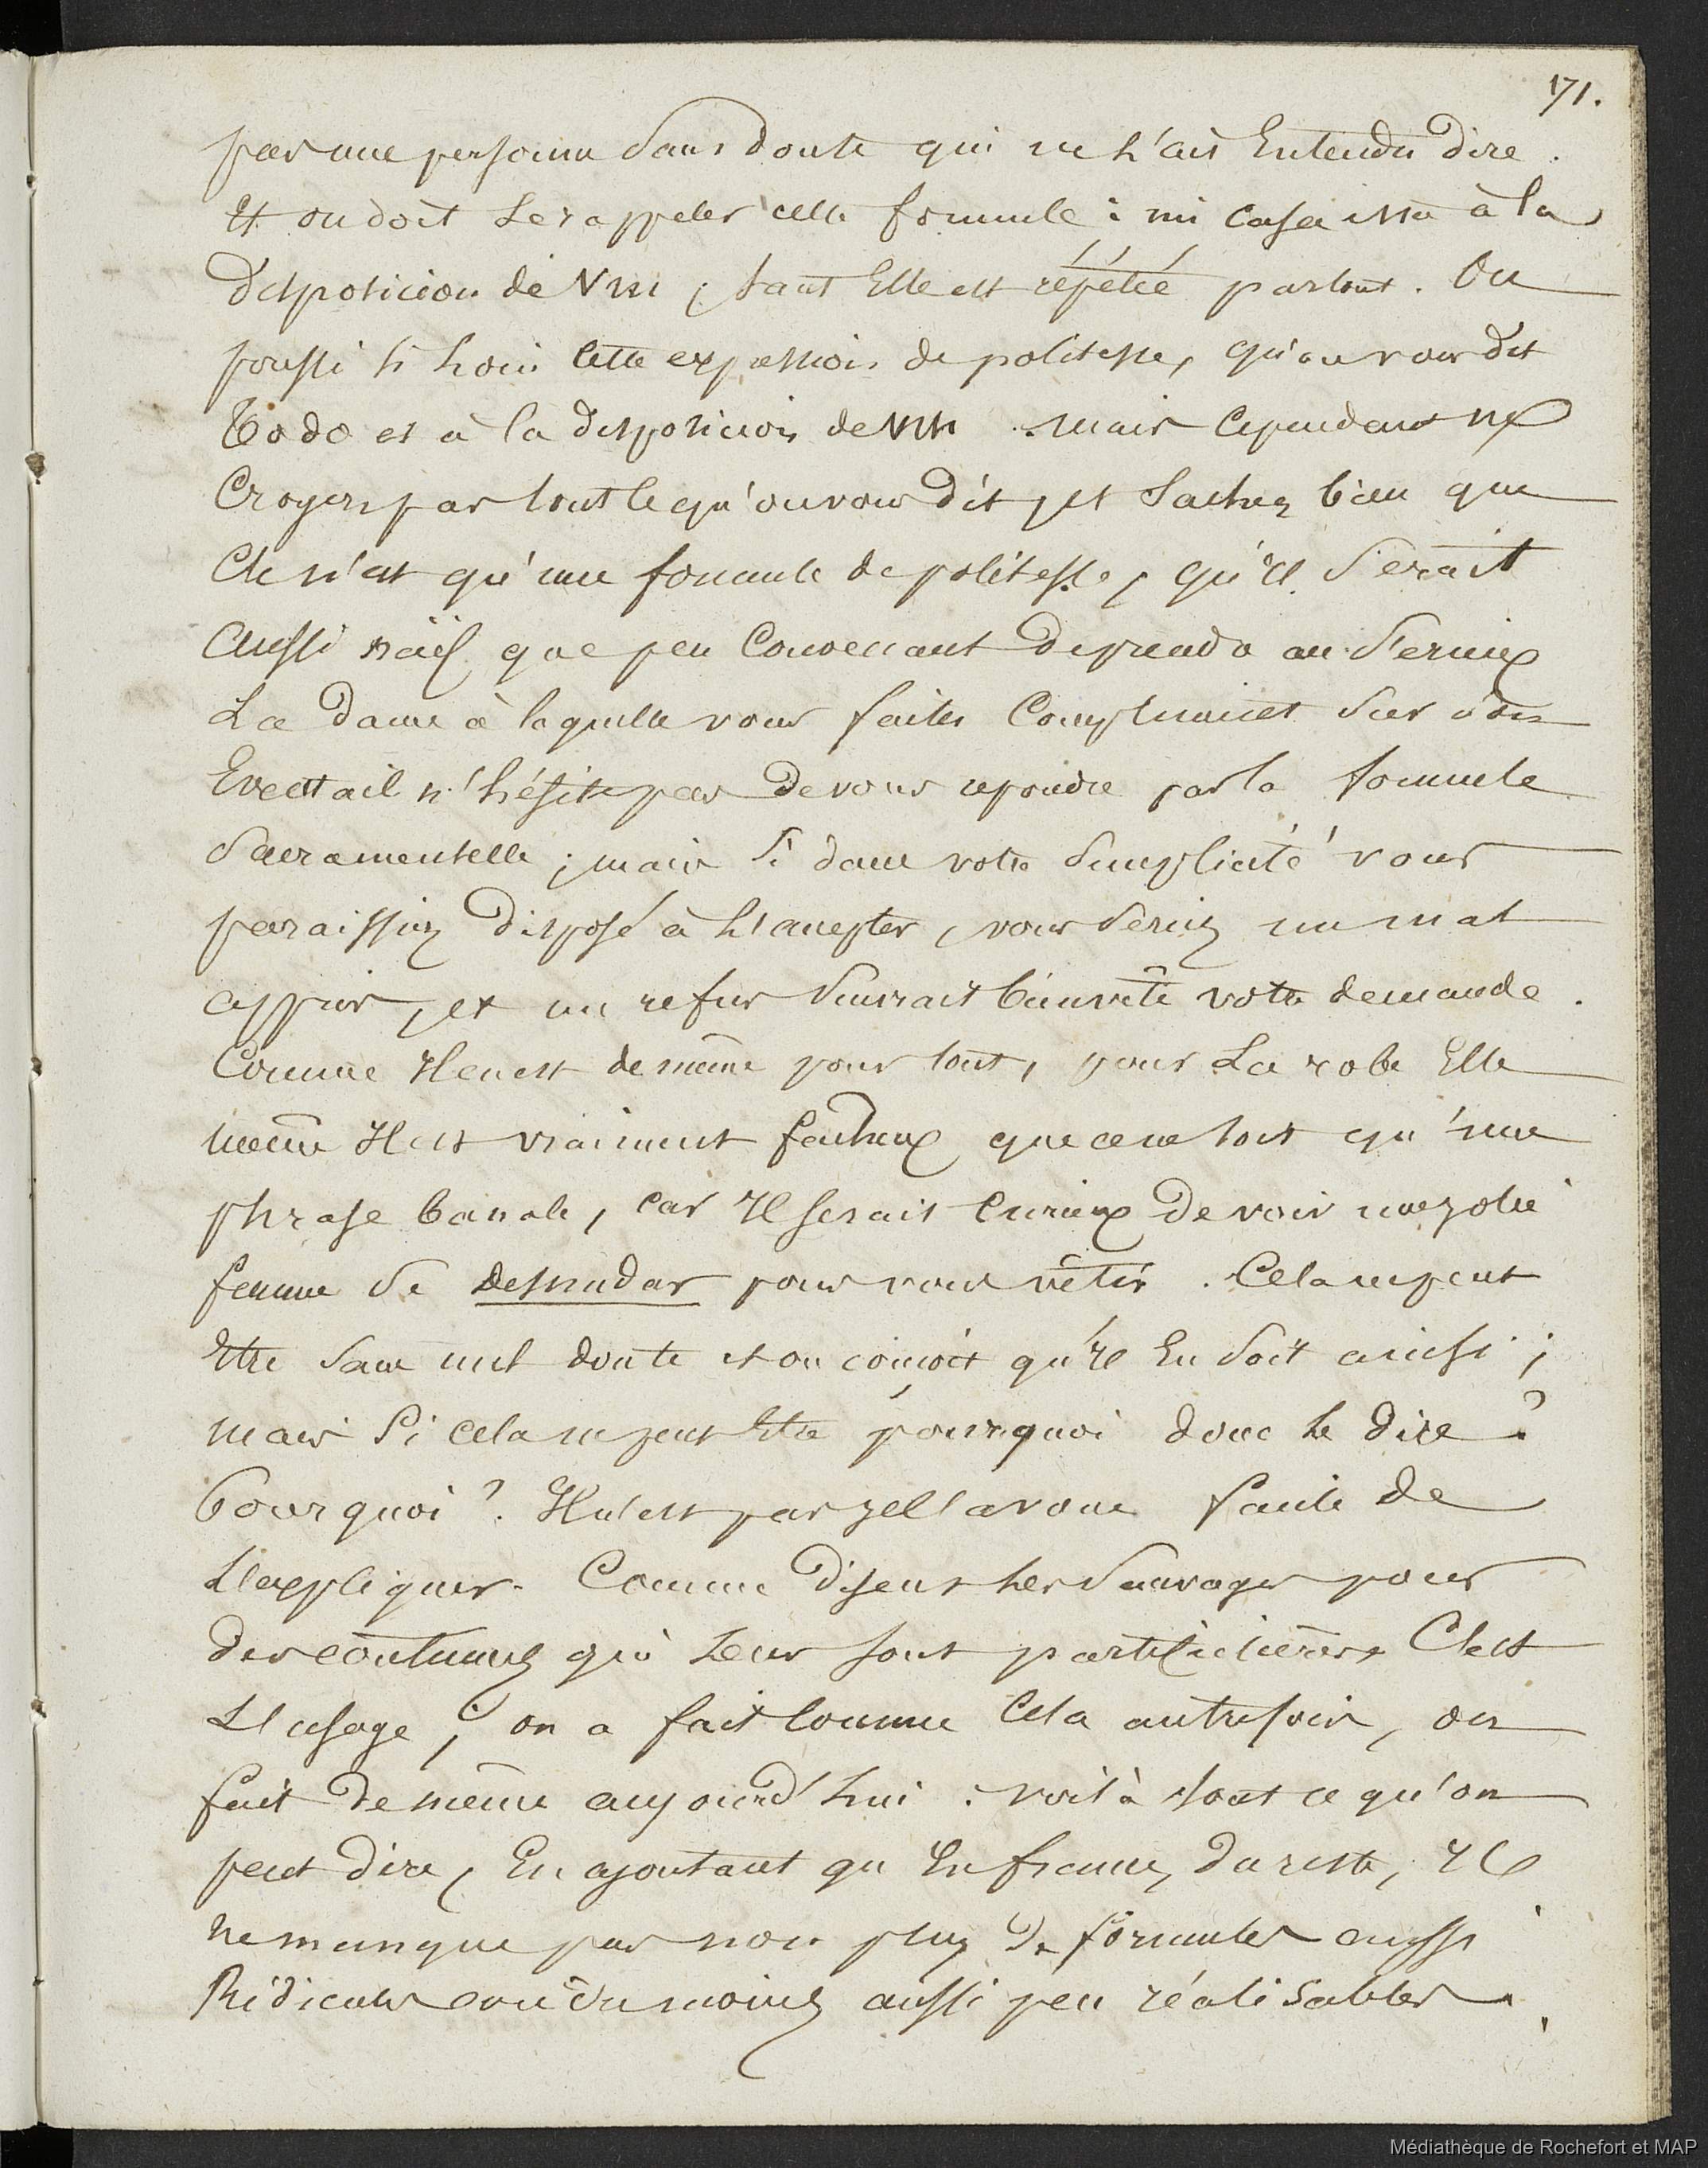 171.
pas une personne sans doute qui ne l'ait Entendu dire.
Et on doit se rappeler cette formule : mi casa esta à la
disposicion de Vm, tant Elle est répétée partout. On
pousse si loin cette expression de politesse, qu'on vous dit
Todo es a la disposicion de Vm. mais cependant ne
Croyez pas tout ce qu'on vous dit, et Sachez bien que
Ce n'est qu'une formule de politesse, qu'il Serait
Aussi naïf que peu Convenant de prendre au Serieux
La dame à laquelle vous faites Compliment Sur son
Eventail n'hésite pas de vous repondre par la formule
Sacramentelle ; mais Si dans votre Simplicité vous
paraissiez disposé à L'accepter, vous Seriez un mal
appris, et un refus Suivrait bien vite votre demande.
Comme Il en est de même pour tout, pour La robe Elle
même Il est vraiment facheux que ce ne soit qu'une
phrase banale, car Il serait Curieux de voir une jolie
femme Se desnudar pour vous vêtir. Cela ne peut
Etre Sans nul doute et on conçoit qu'il En Soit ainsi ;
mais Si cela ne peut Etre pourquoi donc le dire ?
Pourquoi ? Il n'est pas je l'avoue facile de
L'expliquer. Comme disent les Sauvages pour
des coutumes qui leur sont particulières, C'est
L'usage ; on a fait comme Cela autrefois, on
fait de même aujourd'hui : voilà tout ce qu'on
peut dire, En ajoutant qu'En france, du reste, Il
ne manque pas non plus de formules aussi
Ridicules ou du moins aussi peu réalisables.
Médiathèque de Rochefort et MAP